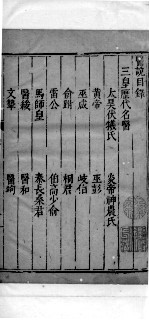 醫說目錄
三皇歷代名醫
太昊伏犧氏 炎帝神農氏
黃帝 巫彭
巫咸 岐伯
俞跗 桐君
雷公 伯高少俞
馬師皇 秦長桑君
醫緩 醫和
文摯 醫竘